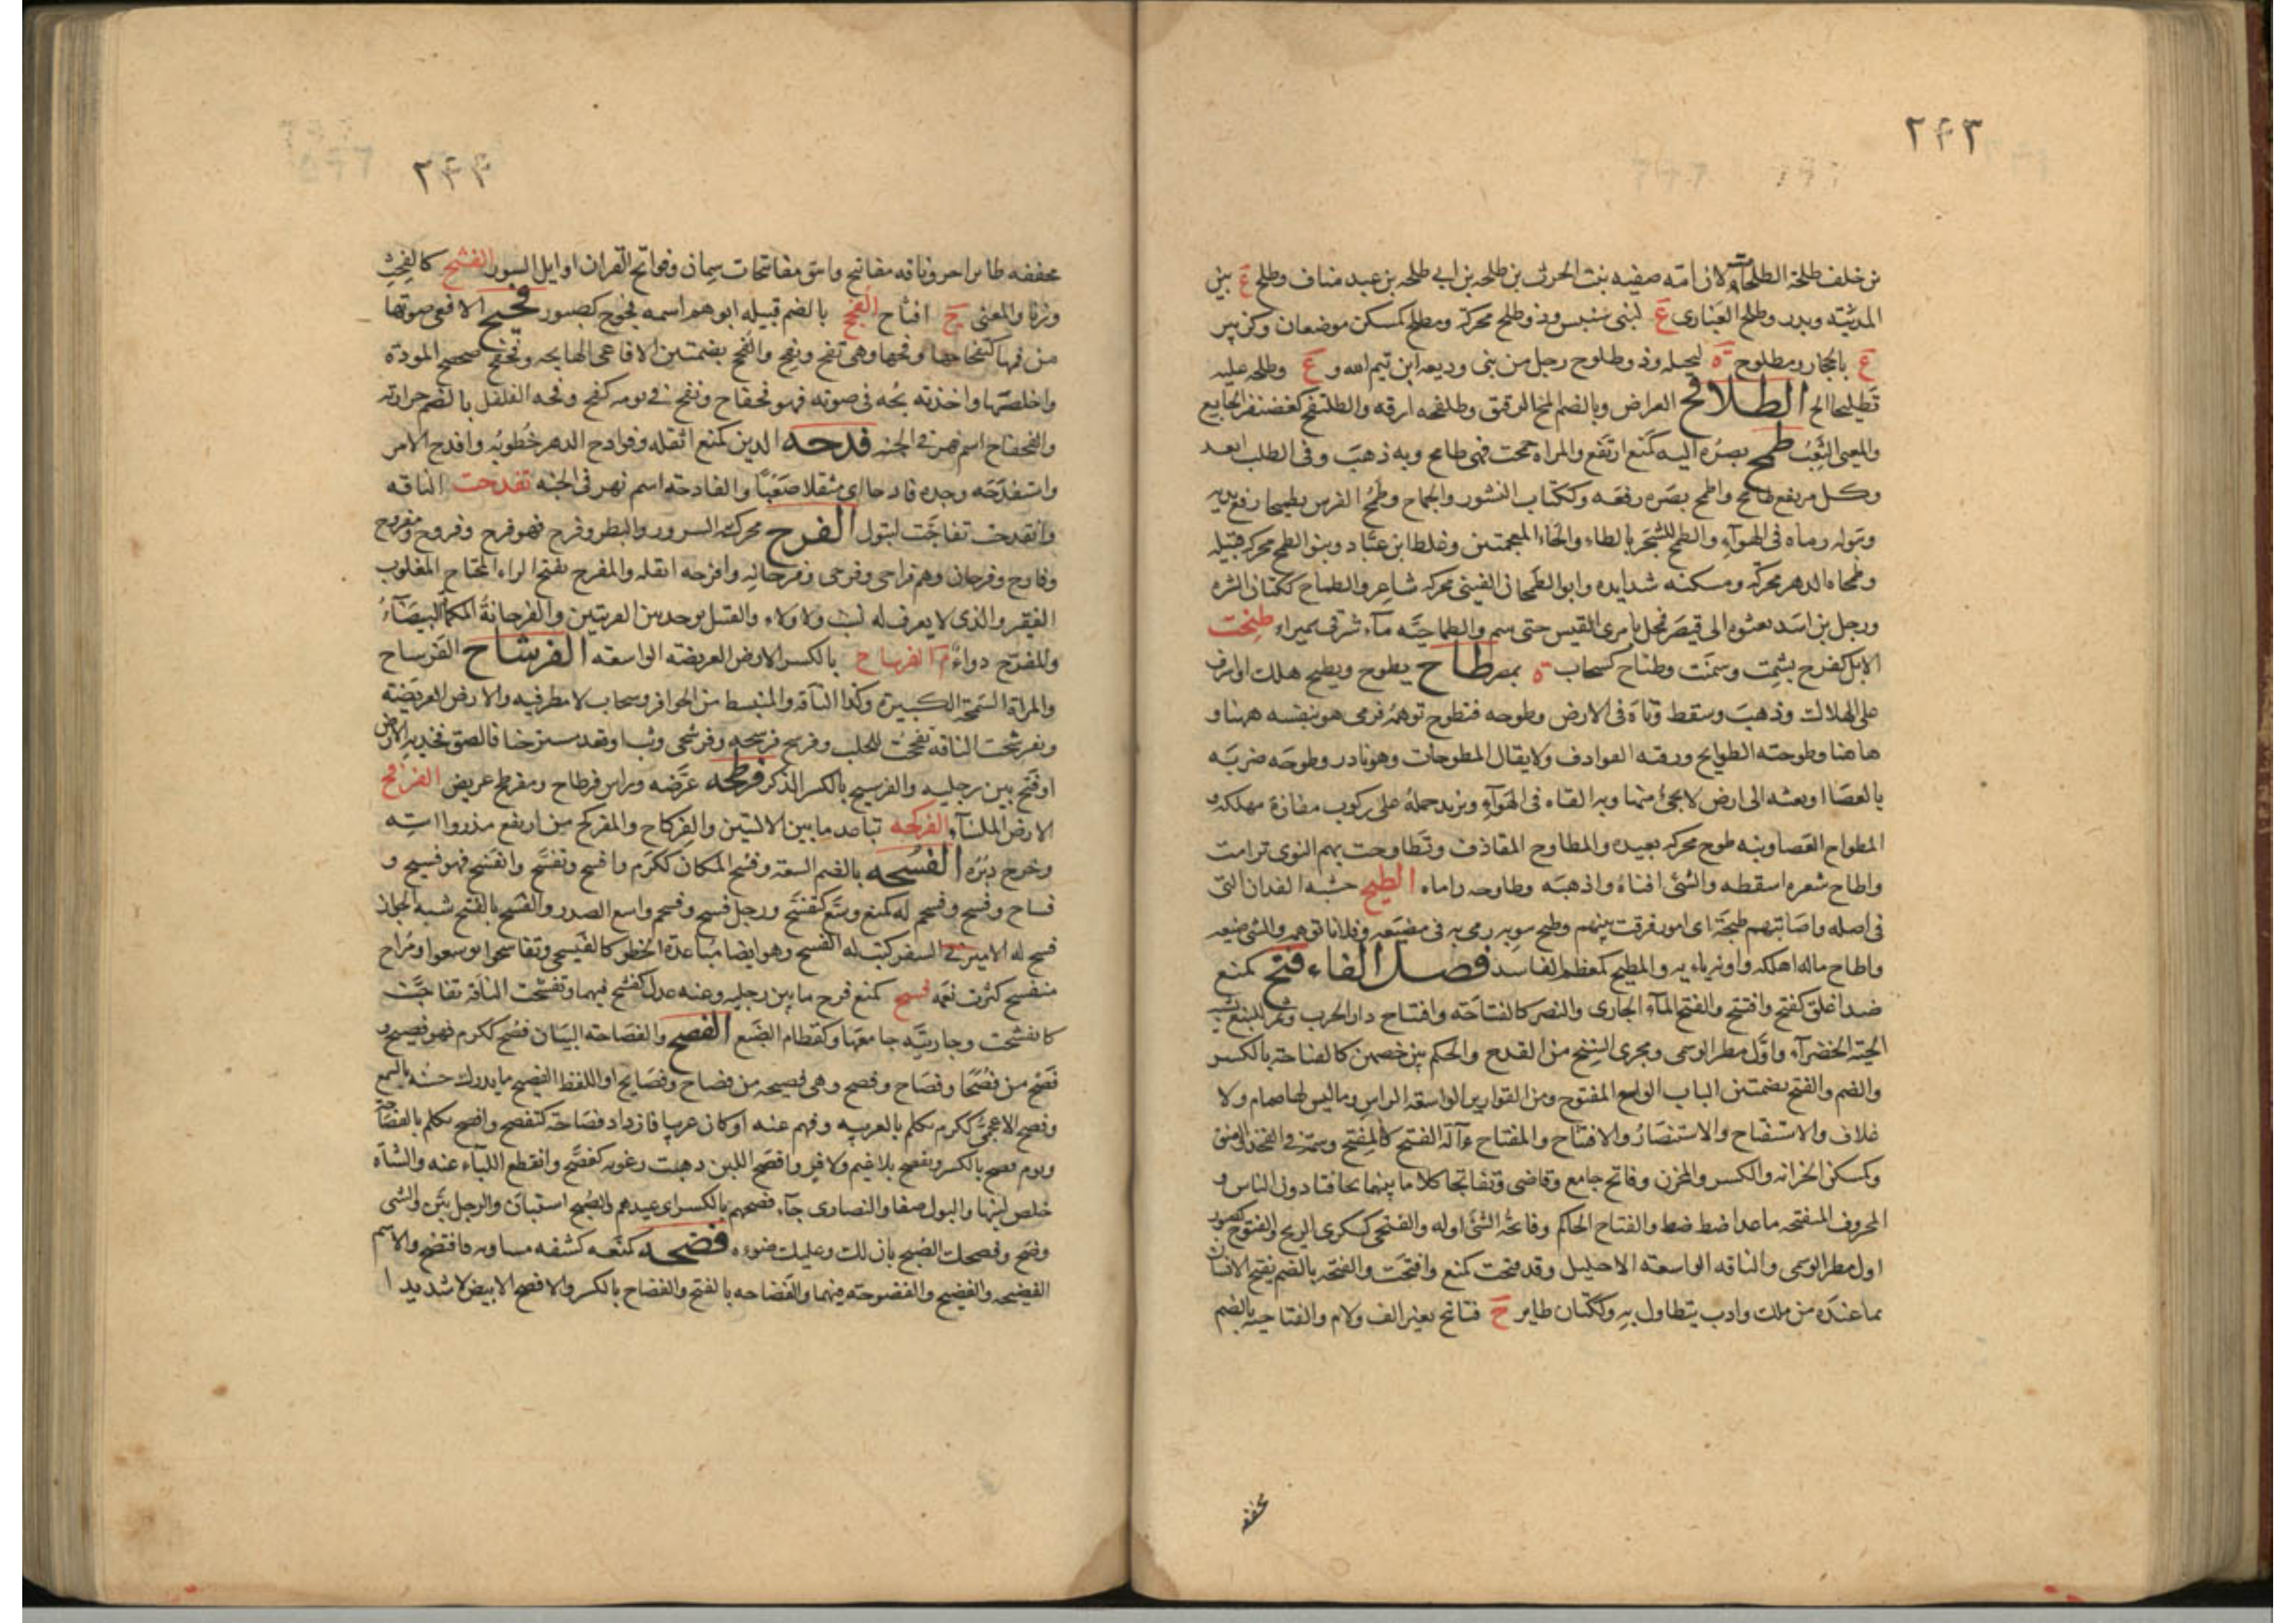 ٢٤٣
بن خلف طلحة الطلحات لان امّه صفيه بنت الحرث بن طلحه بن ابي طلحه بن عبد مناف وطلح ع بين
المدينه وبدر وطلح الغبارى ع لبنى سنبس وذو طلح محركه ومطلح كمسكن موضعان وكزبير
ع بالحجاز ومطلوح ة لبجيله وذو طلوح رجل من بنى وديعه ابن تيم الله و ع وطلح عليه
تطليحا الح الطلافح العراض وبالضم المخ الرقيق وطلفحه ارقه والطلنفح كغضنفر الجايع
والمعيى التعب طمح بصره اليه كمنع ارتفع والمراة جمحت فهى طامح وبه ذهب وفى الطلب ابعد
وكل مرتفع طامح واطمح بصره رفعه وككتاب النشوز والجماح وطمح الفرس تطميحا رفع يديه
وببوله رماه فى الهوآء والطمح للشجر بالظاء والخاء المعجمتين وغلط ابن عباد وبنو الطمح محركه قبيله
وطمحات الدهر محركه ومسكنه شدايده وابو الطمحان القينى محركه شاعر والطماح ككتان الشره
ورجل بن اسد بعثوه الى قيصر فمحل بامرى القيس حتى سم والطماحيّه مآء شرقى سميراء طنحت
الابل كفرح بشمت وسمنت وطناح كسحاب ة بمصر طاح يطوح ويطيح هلك او اشرف
على الهلاك وذهب وسقط وتاه فى الارض وطوحه فتطوح توهه فرمى هو بنفسه ههنا و
ها هنا وطوحته الطوايح ورقته القواذف ولا يقال المطوحات وهو نادر وطوحه ضربه
بالعصا او بعثه الى ارض لا يجئ منها وبه القاه فى الهوآء وبزيد حمله على ركوب مفازة مهلكه و
المطواح العصا ونيه طوح محركه بعيده والمطاوح المقاذف وتطاوحت بهم النوى ترامت
واطاح شعره اسقطه والشئ افناه واذهبه وطاوحه راماه الطيح خشبه الفدان التى
فى اصله واصابتهم طيحة اى امور فرقت بينهم وطيح بثوبه رمى به فى مضيعه وفلانا توهه والشى ضيعه
واطاح ماله اهلكه واوية ياءيه والمطيح كمعظم الفاسد فصل الفاء فتح كمنع
ضد اغلق كفتح وافتتح والفتح المآء الجارى والنصر كالفتاحة وافتتاح دار الحرب وثمر للنبع يشبه
الحبّة الخضرآء واوّل مطر الوسمى ومجرى السنخ من القدح والحكم بين خصمين كالفتاحة بالكسر
والضم والفتح بضمتين الباب الواسع المفتوح ومن القوارير الواسعة الراس وما ليس لها صمام ولا
غلاف والاستفتاح والاستنصار والافتتاح والمفتاح ءآلة الفتح كالمفتح وسمة فى الفخذ والعنق
وكمسكن الخزانه والكنز والمخزن وفاتح جامع وقاضى وتفاتحا كلاما بينهما تخافتا دون الناس و
الحروف المنفتحه ما عدا ضط صظ والفتاح الحاكم وفاتحة الشئ اوله والفتحى كسكرى الريح والفتوح كصبور
اول مطر الوسمى والناقه الواسعه الاحليل وقد فتحت كمنع وافتحت والفتحه بالضم تفتح الانسان
بما عنده من ملك وادب يتطاول به وككتان طاير ح فتاتيح بغير الف ولام والفتاحيه بالضم
مخففه
٢٤٤
مخففه طاير اخر وناقه مفاتيح واينق مفاتيحات سمان وفواتح القران اوايل السور الفثح كالفحث
وزنا والمعنى ح افثاح الفجح بالضم قبيله ابوهم اسمه فجوح كصبور فحيح الافعى صوتها
من فيها كتفحاحها وفحها وهى تفح وتفح والفح بضمتين الافاعى الهايجه وفحفح صحح المودة
واخلصها واخذته بحه فى صوته فهو فحفاح ونفخ فى نومه كفح وفحه الفلفل بالضم حرارته
والفحفاح اسم نهر فى الجنه فدحه الدين كمنع اثقله وفوادح الدهر خطوبه وافدح الامر
واستفدحه وجده فادحا اى مثقلا صعبا والفادحة اسم نهر فى الجنه تفذحت الناقه
وانفذحت تفاجت لتبول الفرح محركه السرور والبطر وفرح فهو فرح وفروح ومفروح
وفارح وفرحان وهم فراحى وفرحى وفرحانه وافرحه اثقله والمفرح بفتح الراء المحتاج المغلوب
الفقير والذى لا يعرف له نسب ولا ولاء والقتيل يوجد بين القريتين والفرحانة الكمأ البيضآء
والمفرّح دواء م الفرساح بالكسر الارض العريضه الواسعه الفرشاح الفرساح
والمراة السمجة الكبيرة وكذا الناقه والمنبسط من الحوافر وسحاب لا مطر فيه والارض العريضة
وتفرشحت الناقه تفحجت للحلب وفرشح فرشحه وفرشحى وثب وقعد مسترخيا فالصق فخذيه بالارض
او فتح بين رجليه والفرشيح بالكسر الذكر فرطحه عرّضه وراس فرطاح ومفرطح عريض الفرقح
الارض الملسآء الفركحه تباعد ما بين الاليتين والفركاح والمفركح من ارتفع مذروا استه
وخرج دبره الفسحه بالضم السعه وفسح المكان ككرم وافسح وتفسح وانفسح فهو فسيح و
فساح وفسح وفسحم له كمنع وسع كتفسّح ورجل فسح وفسحم واسع الصدر والفسح بالفتح شبه الجواز
فسح له الامير فى السفر كتب له الفسح وهو ايضا مباعدة الخطو كالفيسحى وتفاسحوا توسعوا ومراح
منفسح كثرت نعمه فشح كمنع فرج ما بين رجليه وعنه عدل كفشح فيهما وتفشحت الناقة تفاجّت
كانفشحت وجاريته جامعها وكقطام الضبع الفصح والفصاحه البيان فصح ككرم فهو فصيح و
فصح من فصحا وفصاح وفصح وهى فصيحه من فصاح وفصايح او اللفظ الفصيح ما يدرك حسنه بالسمع
وفصح الاعجمى ككرم تكلم بالعربيه وفهم عنه او كان عربيا فازداد فصاحة كتفصح وافصح تكلم بالفصاحة
ويوم فصح بالكسر ومفصح بلا غيم ولا قر وافصح اللبن ذهبت رغوته كفصح وانقطع اللبآء عنه والشآة
خلص لبنها والبول صفا والنصارى جآء فصحهم بالكسر اى عيدهم والصبح استبان والرجل بين والشى
وضح وفصحك الصبح بان لك وغلبك ضوءه فضحه كمنعه كشفه مساويه فافتضح والاسم
الفضيحه والفضيح والفضوحة فيهما والفضاحه بالفتح والفضاح بالكسر والافضح الابيض لا شديدا